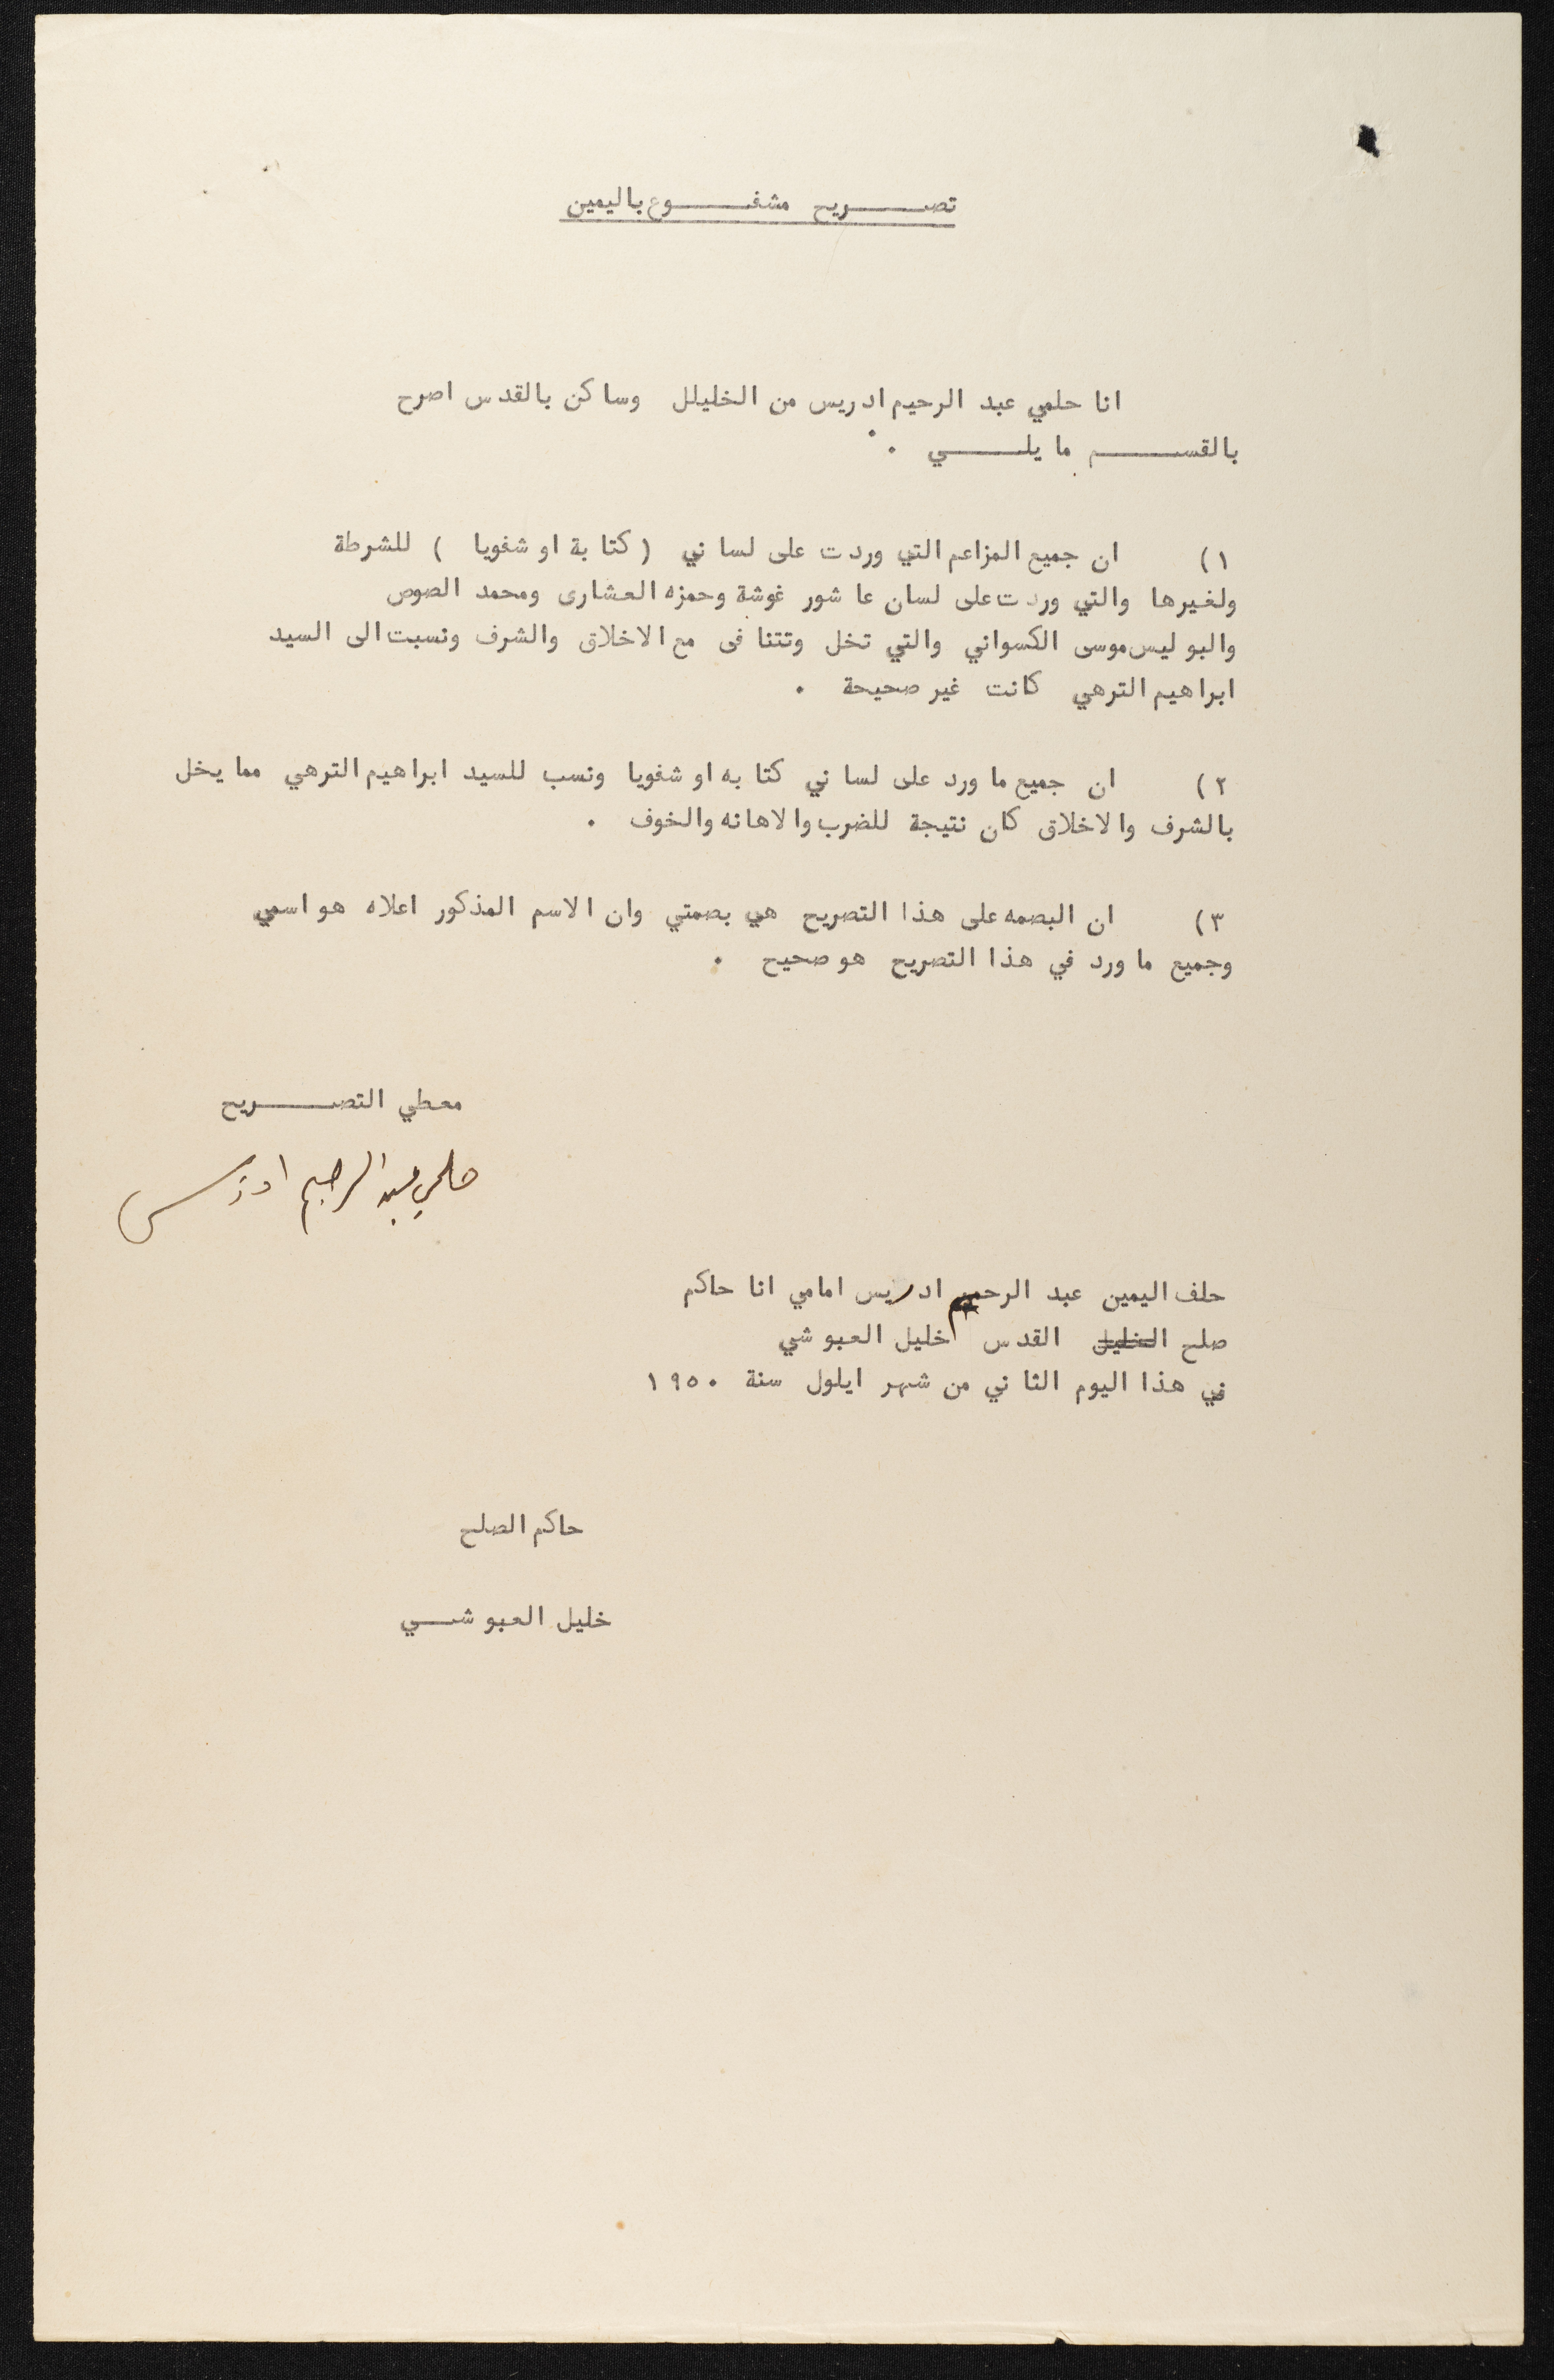 تصـــريح مشفـــوع باليمين
انا حلمي عبد الرحيم ادريس من الخليلل وساكن بالقدس اصرح
بالقســـم ما يلـــي .
١) ان جميع المزاعم التي وردت على لساني ( كتابة او شفويا ) للشرطة
ولغيرها والتي وردت على لسان عاشور غوشة وحمزه العشارى ومحمد الصوص
والبوليس موسى الكسواني والتي تخل وتتنافى مع الاخلاق والشرف ونسبت الى السيد
ابراهيم الترهي كانت غير صحيحة .
٢) ان جميع ما ورد على لساني كتابه او شفويا ونسب للسيد ابراهيم الترهي مما يخل
بالشرف والاخلاق كان نتيجة للضرب والاهانه والخوف .
٣) ان البصمه على هذا التصريح هي بصمتي وان الاسم المذكور اعلاه هو اسمي
وجميع ما ورد في هذا التصريح هو صحيح .
معطي التصـــريح
حلمي عبد الرحيم ادريس
حلف اليمين عبد الرحيم ادريس امامي انا حاكم
صلح الخليل القدس خليل العبوشي
في هذا اليوم الثاني من شهر ايلول سنة ١٩٥٠
حاكم الصلح
خليل العبوشـــي